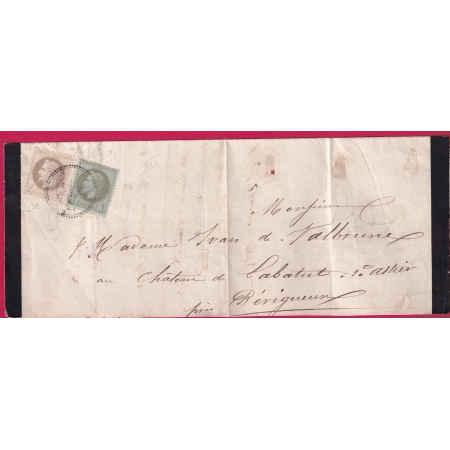 Monsieur
& Madame Ivan de Valbrune
au Château de Labatut St Astier
près Périgueux